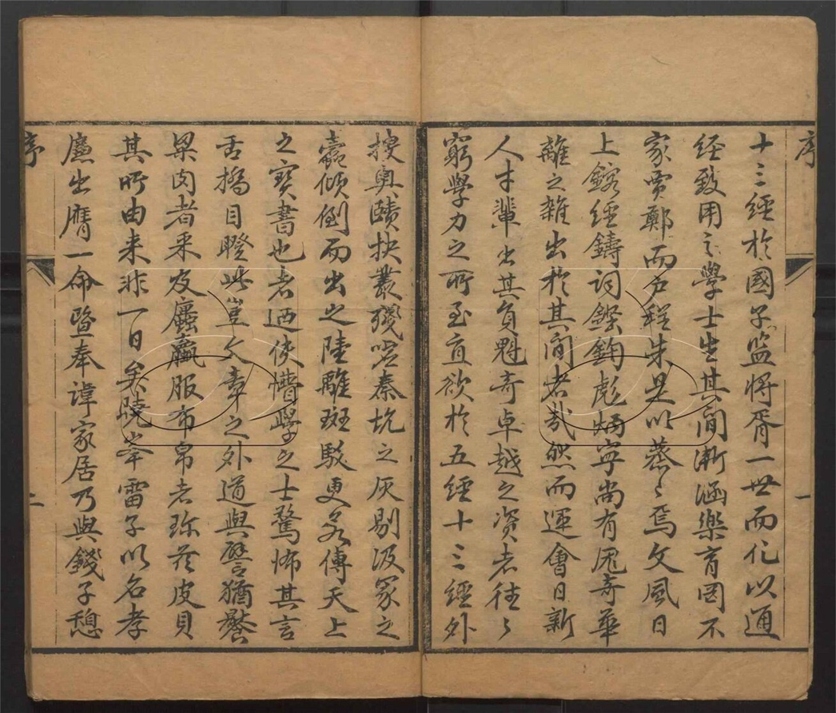 序
十三經於國子監將胥一世而化以通
經致用之學士生其間漸涵樂育罔不
家賈鄭而戶程朱是以蒸〻焉文風日
上鎔經鑄詞鏗鈞彪炳寧尚有瑰奇華
離之雜出於其間者哉然而運會日新
人才輩出其負魁奇卓越之資者往〻
窮學力之所至直欲於五經十三經外
一
搜奧賾抉叢殘噓秦坑之灰剔汲冢之
蠹傾倒而出之陸離斑駁更若傳天上
之寶書也者迺使懵學之士驚怖其言
舌撟目瞪此豈文章之外道與譬猶饜
梁肉者采及蠯蠃服布帛者珍於皮貝
其所由来非一日矣曉峯雷子以名孝
廉出膺一命旋奉諱家居乃與錢子憩
序
二